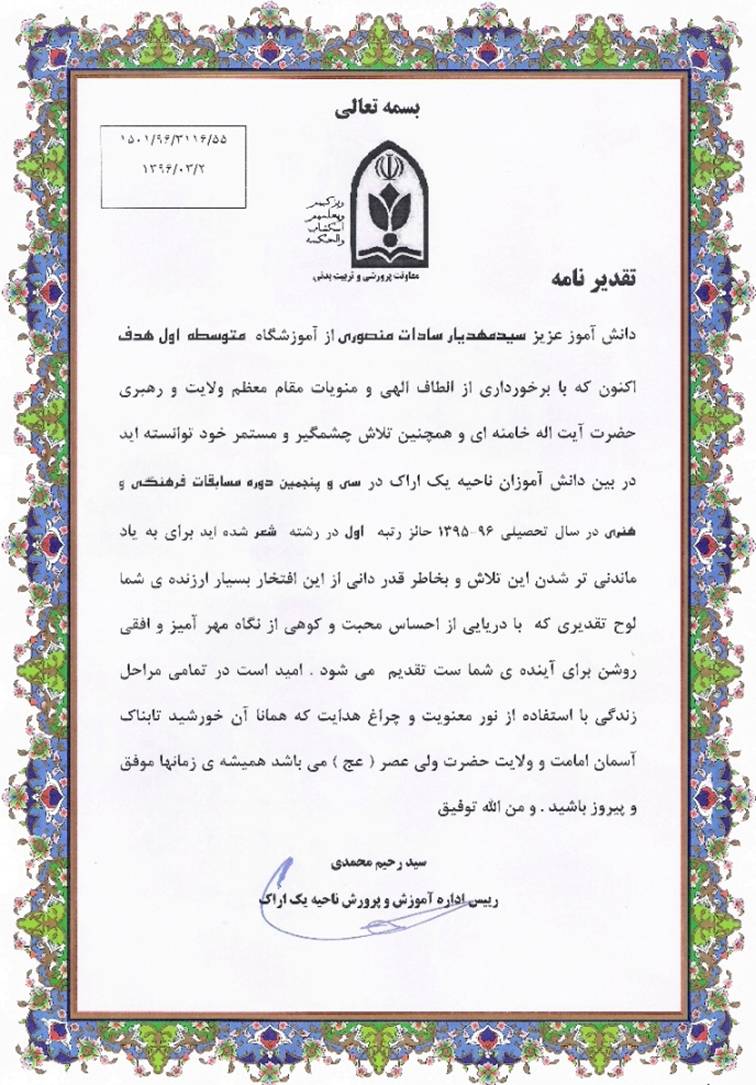 بسمه تعالی
۱۵۰۱/۹۶/۳۱۱۶/۵۵
۱۳۹۶/۰۳/۲
ویزکیهم
ویعلمهم
الکتاب
والحکمه
معاونت پرورشی و تربیت بدنی
تقدیر نامه
دانش آموز عزیز سیدمهدیار سادات منصوری از آموزشگاه متوسطه اول هدف
اکنون که با برخورداری از الطاف الهی و منویات مقام معظم ولایت و رهبری
حضرت آیت اله خامنه ای و همچنین تلاش چشمگیر و مستمر خود توانسته اید
در بین دانش آموزان ناحیه یک اراک در سی و پنجمین دوره مسابقات فرهنگی و
هنری در سال تحصیلی ۹۶-۱۳۹۵ حائز رتبه اول در رشته شعر شده اید برای به یاد
ماندنی تر شدن این تلاش و بخاطر قدر دانی از این افتخار بسیار ارزنده ی شما
لوح تقدیری که با دریایی از احساس محبت و کوهی از نگاه مهر آمیز و افقی
روشن برای آینده ی شما ست تقدیم می شود . امید است در تمامی مراحل
زندگی با استفاده از نور معنویت و چراغ هدایت که همانا آن خورشید تابناک
آسمان امامت و ولایت حضرت ولی عصر ( عج ) می باشد همیشه ی زمانها موفق
و پیروز باشید . و من الله توفیق
سید رحیم محمدی
رییس اداره آموزش و پرورش ناحیه یک اراک